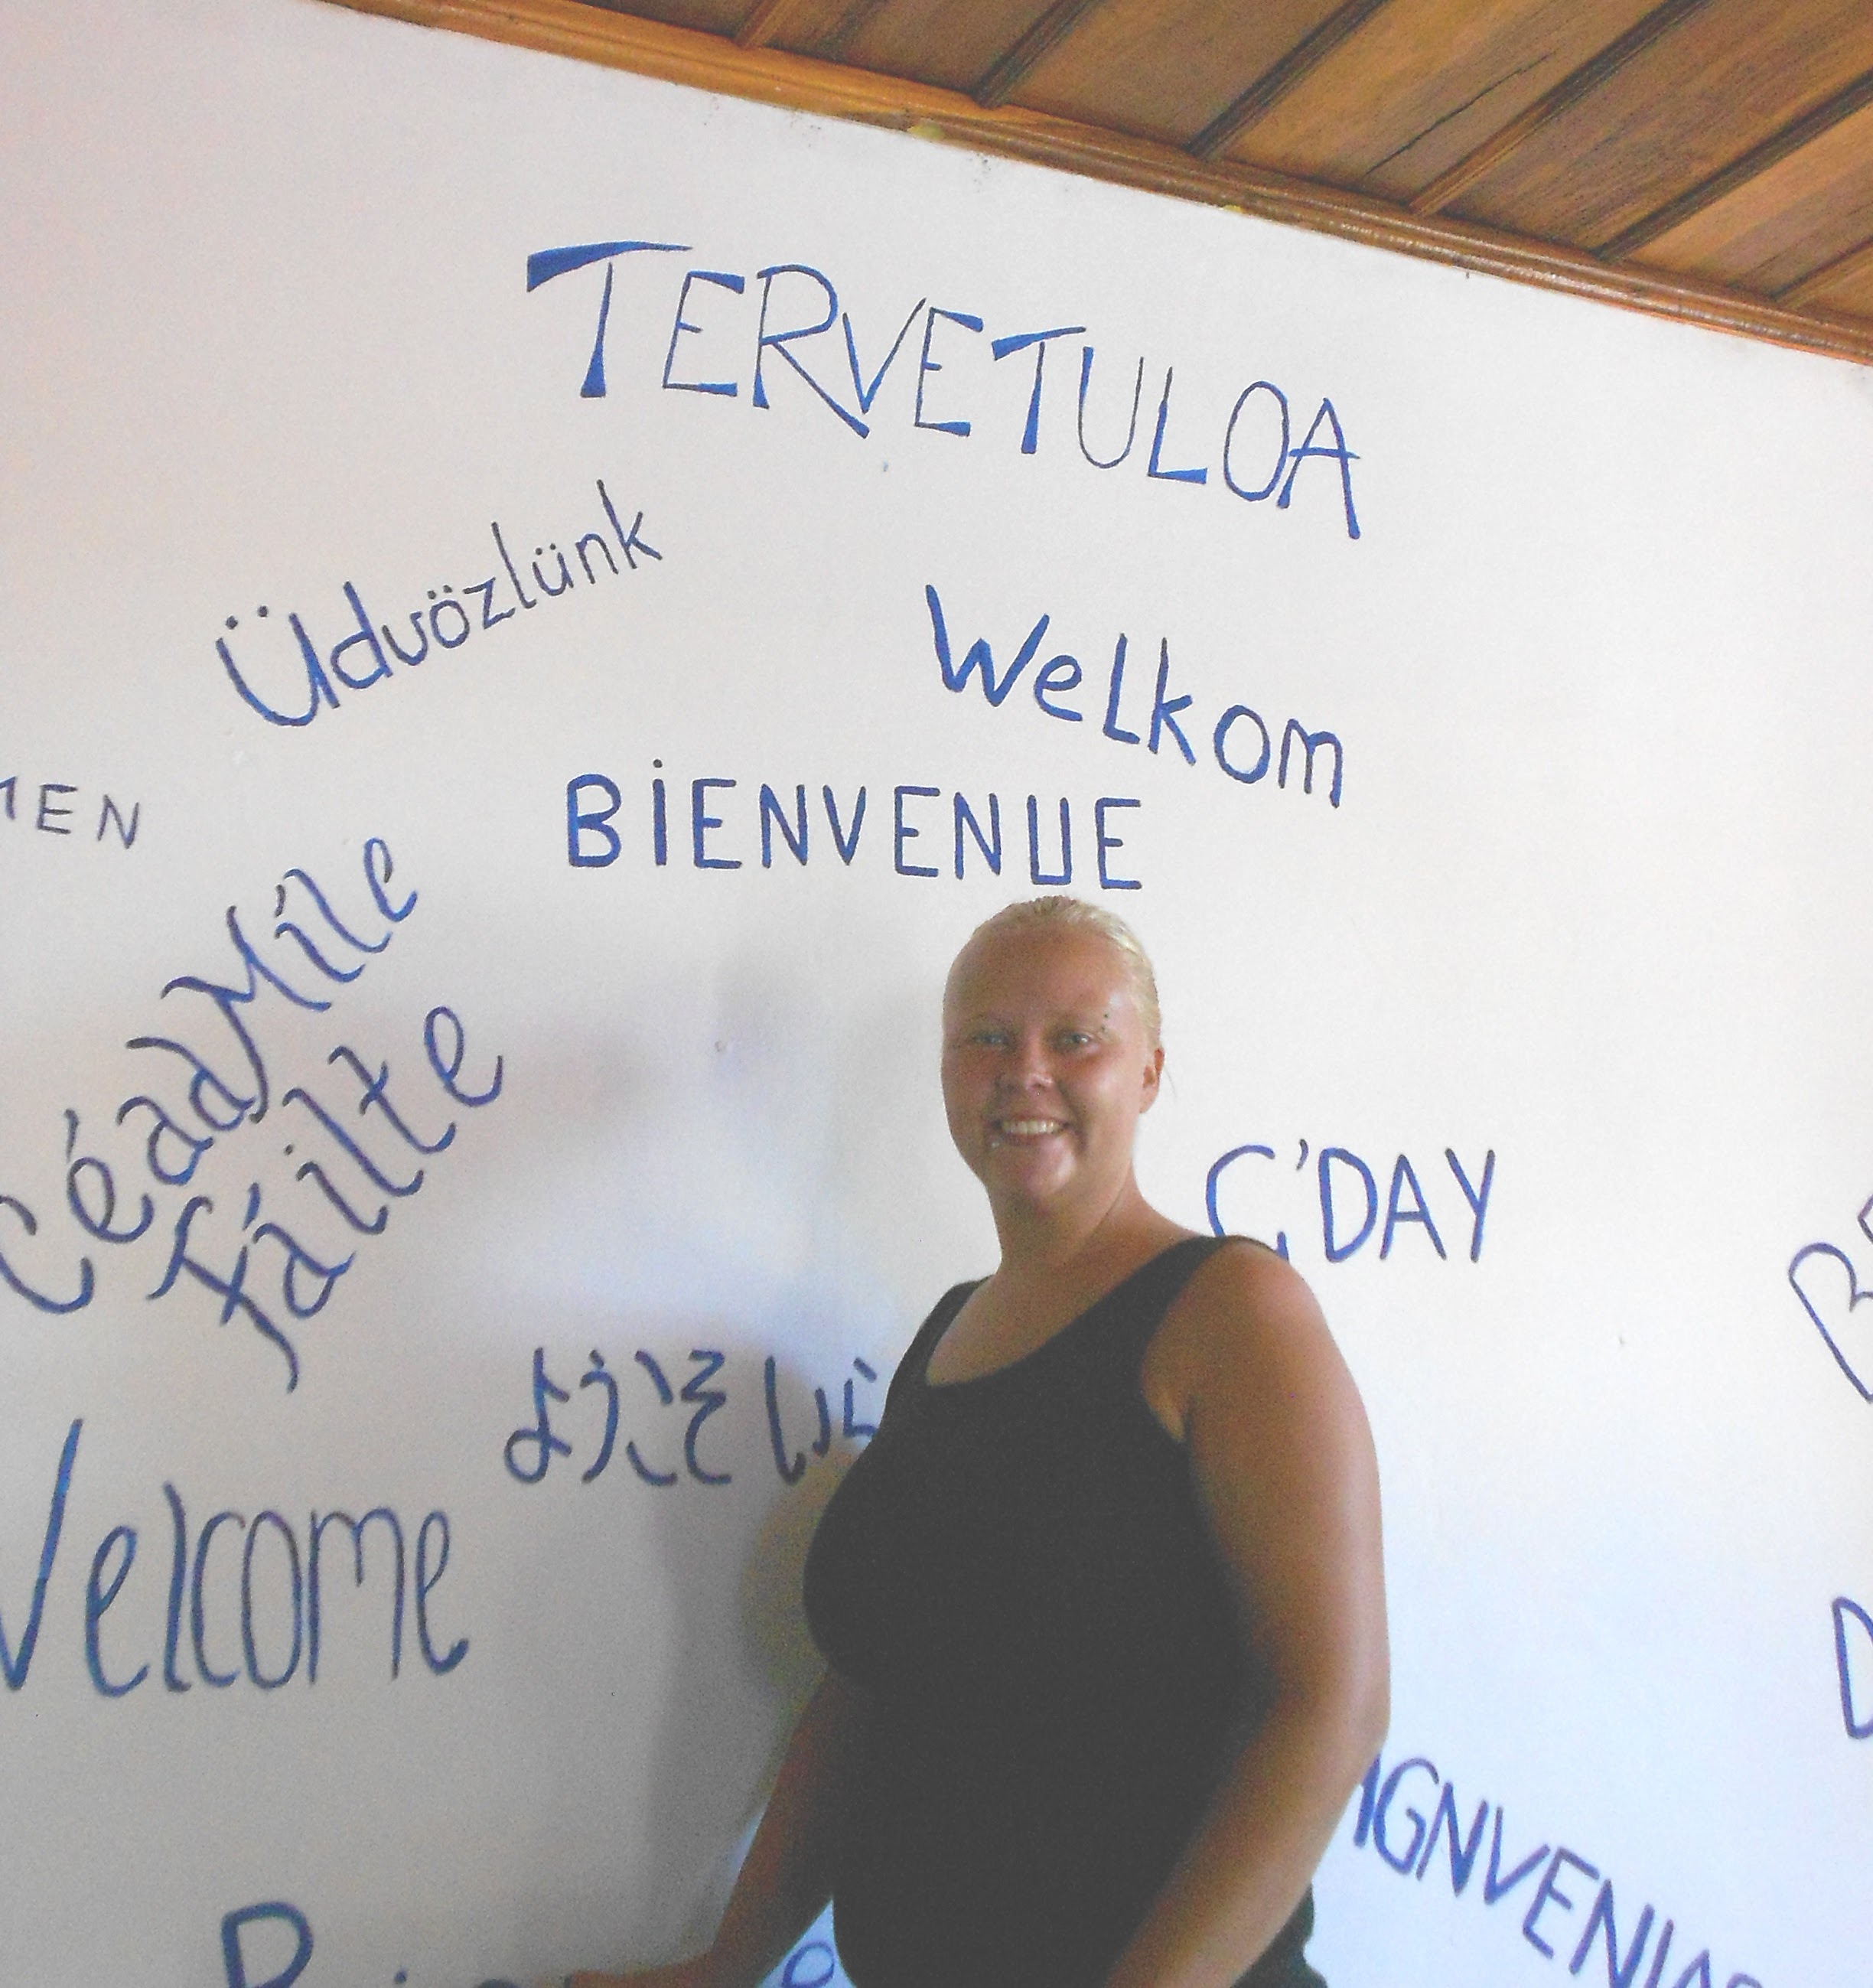 TERVETULOA
Üdvözlünk
Welkom
BiENVENUE
Céad Míle
fáilte
G'DAY
ようこそ いら
Welcome